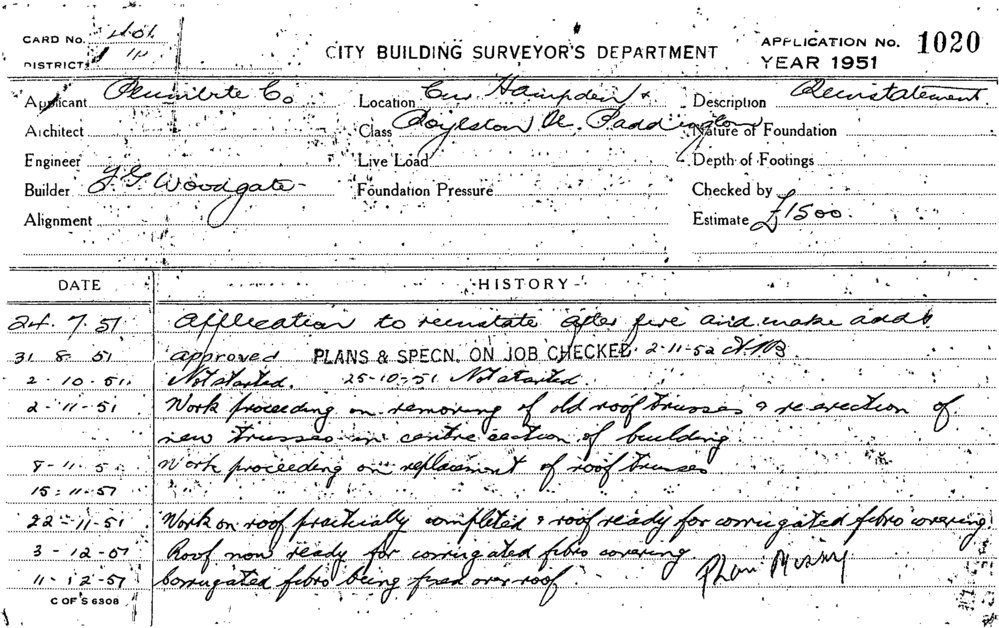 CARD No.
DISTRICT
CITY BUILDING SURVEYOR'S DEPARTMENT
APPLICATION No. 1020
YEAR 1951
Applicant Co
Location Cnr Hampden &
Description Reinstatement
Architect
Class Roylston St. Paddington
Nature of Foundation
Engineer
Live Load
Depth of Footings
Builder Woodgate
Foundation Pressure
Checked by
Alignment
Estimate £1500.
DATE HISTORY
24. 7. 51 Application to reinstate after fire and make add
31 8 51 approved PLANS & SPECN. ON JOB CHECKED 2-11-52
2-10-51. Not started. 25-10-51 Not started.
2-11-51 Work proceeding on removing of old roof trusses & re erection of
new trusses in centre section of building
8-11-5 Work proceeding on replacement of roof trusses
15-11-51 " " " " " "
22-11-51 Work on roof practically completed & roof ready for corrugated fibro covering
3-12-51 Roof now ready for corrugated fibro covering
11-12-51 Corrugated fibro being fixed over roof.
Plan
C OF S 6308